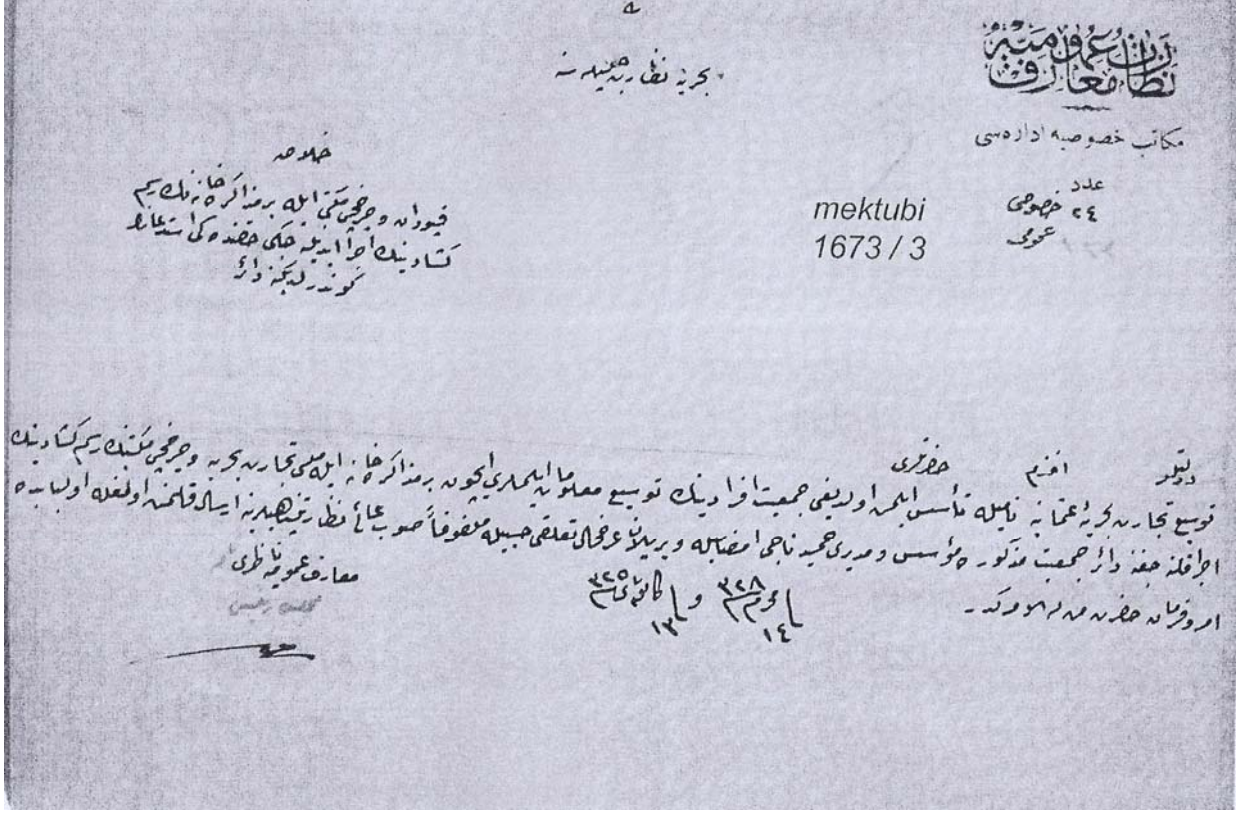 نظارت معارف عمومیه
مكاتب خصوصیه اداره‌سی
عدد
٢٤ خصوصی
عمومی
mektubi
1673 / 3
بحریه نظارت جلیله‌سنه
خلاصه
قپودان و چرخجی مكتبی ایله بر مذاكره‌خانه‌نك رسم
كشادینك اجرا ایدیله‌جكی حقنده‌كی استدعانك
كوندرلدیكنه دائر
دولتلو افندم حضرتلری
توسیع تجارت بحریۀ عثمانیه نامیله تأسیس ایلمش اولدیغی جمعیت افرادینك توسیع معلومات ایلملری ایچون بر مذاكره‌خانه ایله ملی تجارت بحریه و چرخجی مكتبنك رسم كشادینك
اجرا قلنه‌جغنه دائر جمعیت مذكوره مؤسس و مدیری حمید ناجی امضاسیله ویریلان عرضحال تعلقی حسبیله ملفوفاً صوب عالئ نظارتپناهیلرینه ارسال قلنمش اولمغله اولبابده
امر و فرمان حضرت من له الامركدر
١٤ محرم ٣٢٨ و ١٣ كانون ثانی ٣٢٥
معارف عمومیه ناظری